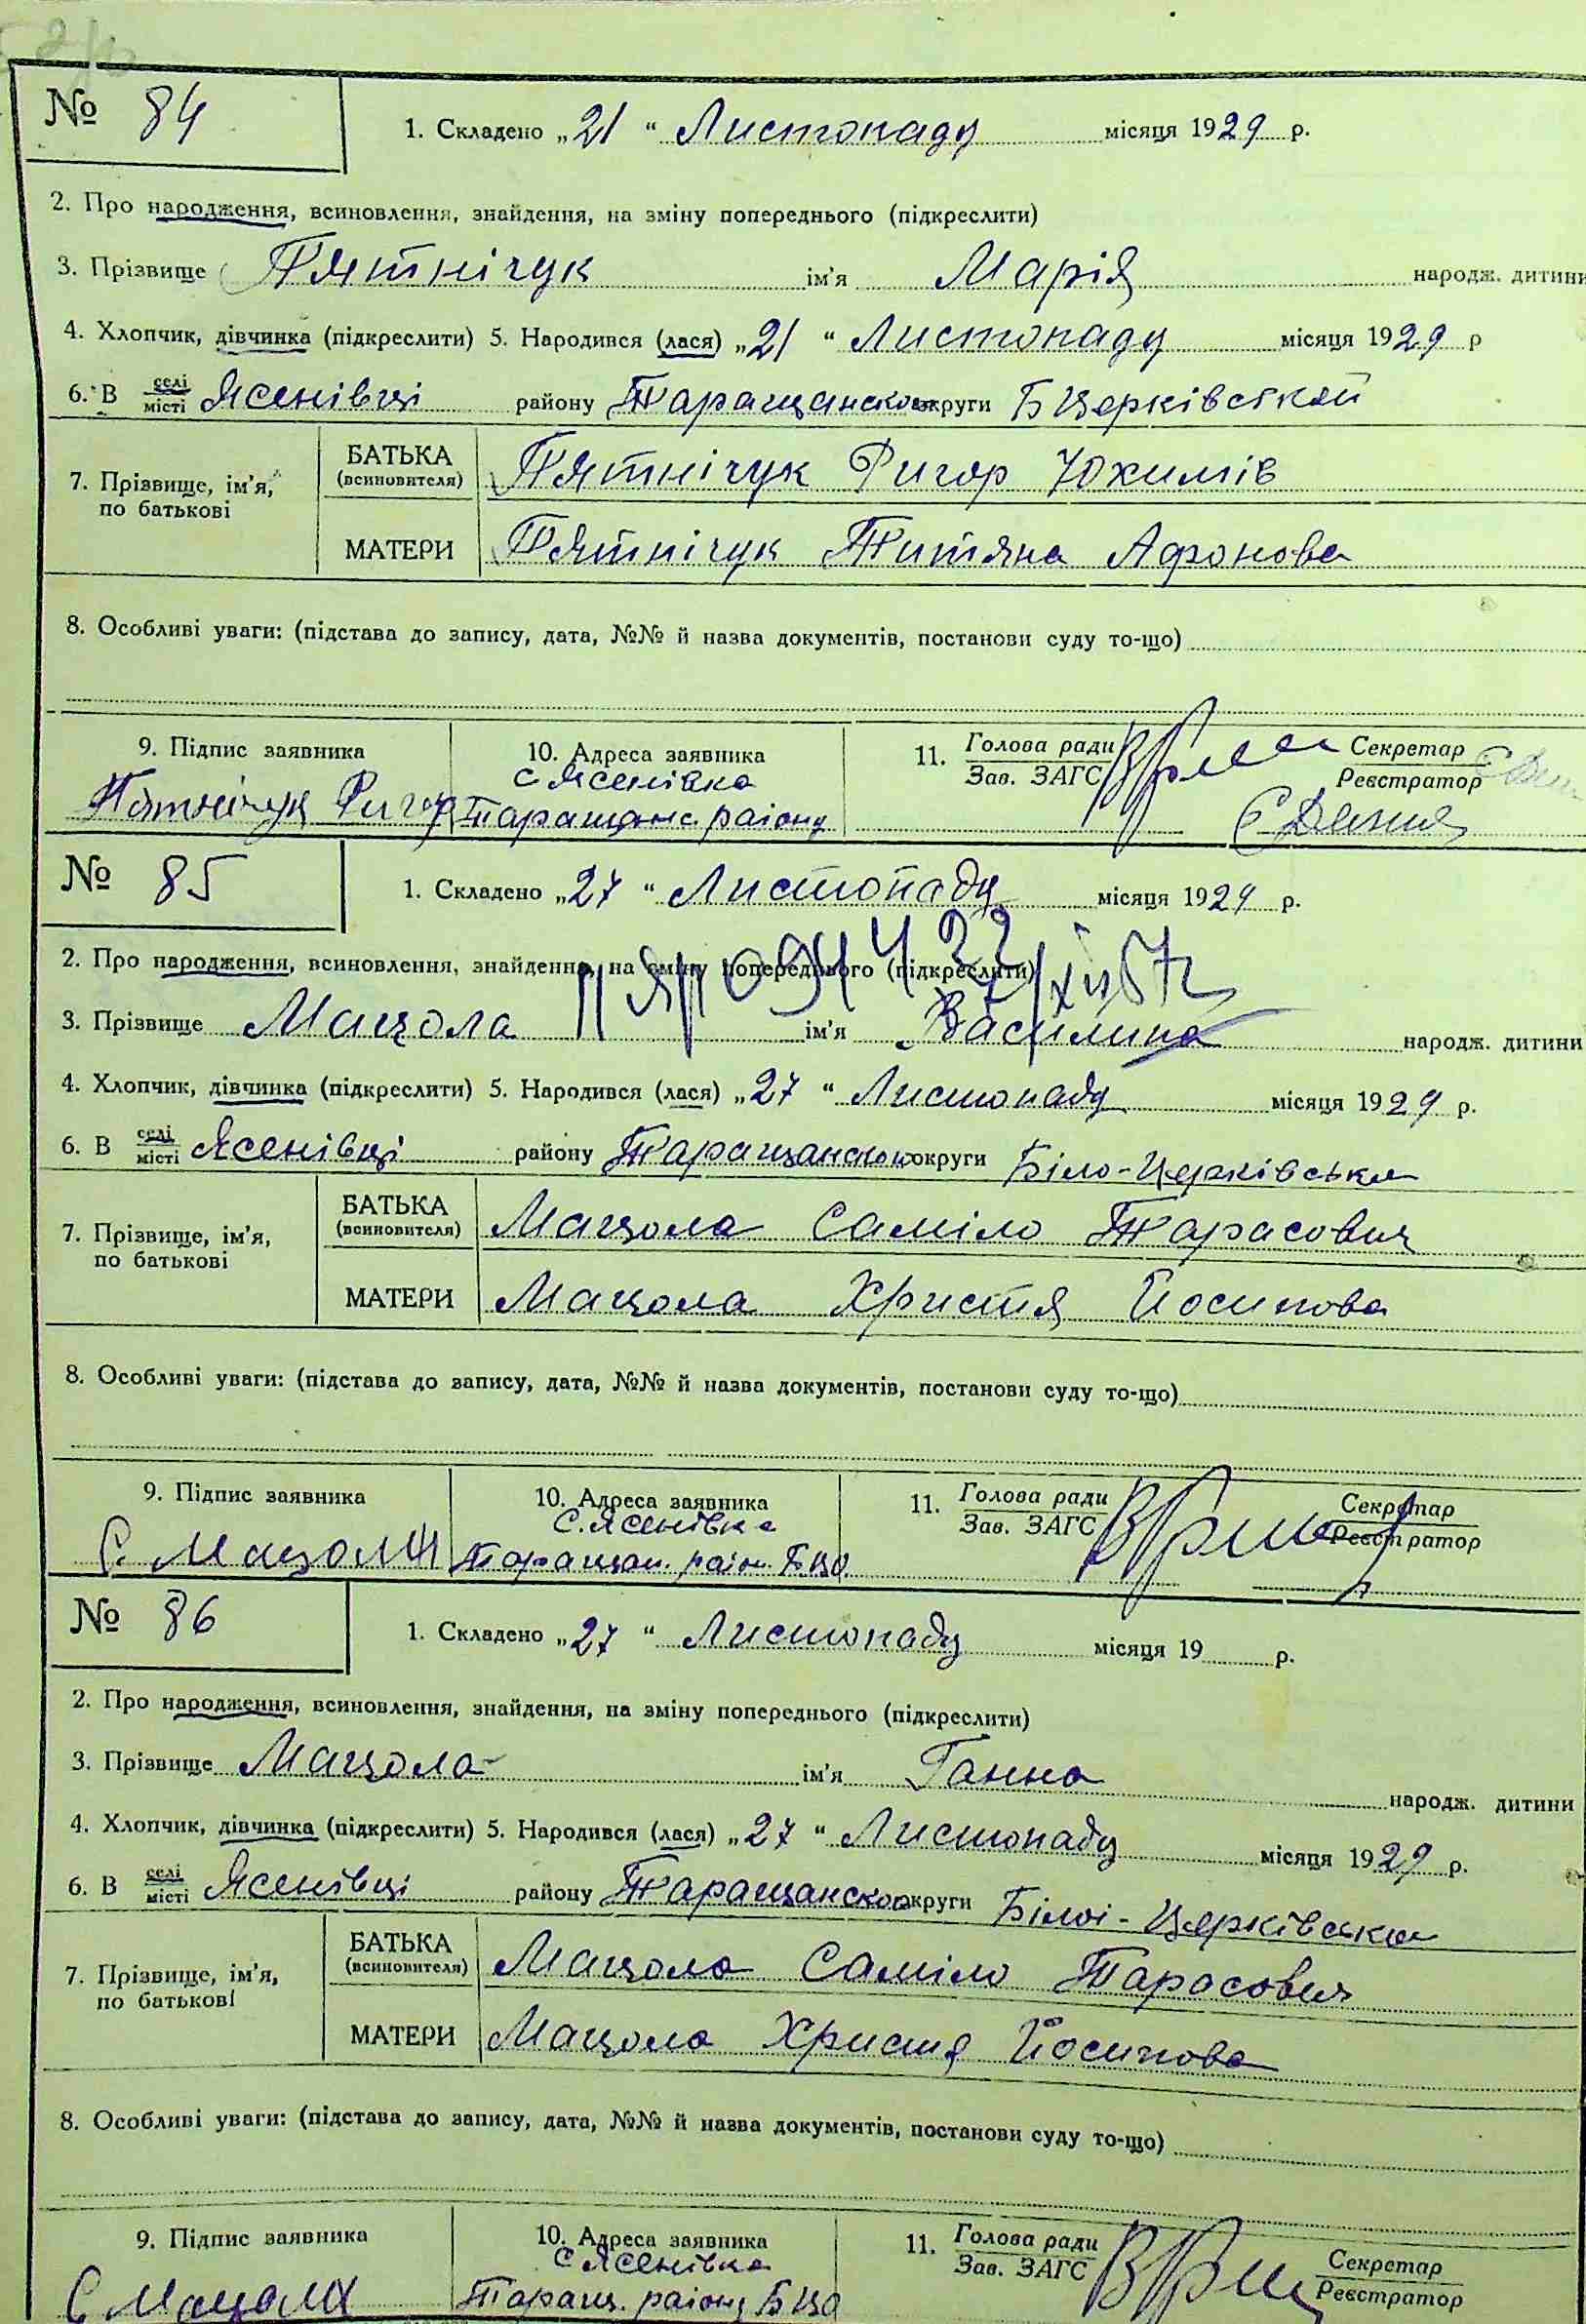 № 84
1. Складено „21“ Листопаду місяця 1929 р.
2. Про народження, всиновлення, знайдення, на зміну попереднього (підкреслити)
3. Прізвище Пятнічук ім'я Марія народж. дитини
4. Хлопчик, дівчинка (підкреслити) 5. Народився (лася) „21“ Листопаду місяця 1929 р
6. В селі/місті Ясенівці району Таращанског округи БЦерківській
7. Прізвище, ім'я, по батькові
БАТЬКА (всиновителя) Пятнічук Ригор Юхимів
МАТЕРИ Пятнічук Титяна Афонова
8. Особливі уваги: (підстава до запису, дата, №№ й назва документів, постанови суду то-що)
9. Підпис заявника 10. Адреса заявника 11. Голова ради/Зав. ЗАГС Секретар/Реєстратор
с Ясенівка
Пятнічук Ригор Таращанс. району
№ 85
1. Складено „27“ Листопаду місяця 1929 р.
2. Про народження, всиновлення, знайдення, на зміну попереднього (підкреслити)
3. Прізвище Мацола ім'я Василина народж. дитини
4. Хлопчик, дівчинка (підкреслити) 5. Народився (лася) „27“ Листопаду місяця 1929 р.
6. В селі/місті Ясенівці району Таращанског округи Біло-Церківська
7. Прізвище, ім'я, по батькові
БАТЬКА (всиновителя) Мацола Саміло Тарасович
МАТЕРИ Мацола Христя Йосипова
8. Особливі уваги: (підстава до запису, дата, №№ й назва документів, постанови суду то-що)
9. Підпис заявника 10. Адреса заявника 11. Голова ради/Зав. ЗАГС Секретар/Реєстратор
с. Ясенівка
С. Мацола Таращан. район БЦО.
№ 86
1. Складено „27“ Листопаду місяця 19 р.
2. Про народження, всиновлення, знайдення, на зміну попереднього (підкреслити)
3. Прізвище Мацола ім'я Ганна народж. дитини
4. Хлопчик, дівчинка (підкреслити) 5. Народився (лася) „27“ Листопаду місяця 1929 р.
6. В селі/місті Ясенівці району Таращанског округи Білої-Церківська
7. Прізвище, ім'я, по батькові
БАТЬКА (всиновителя) Мацола Саміло Тарасович
МАТЕРИ Мацола Христя Йосипова
8. Особливі уваги: (підстава до запису, дата, №№ й назва документів, постанови суду то-що)
9. Підпис заявника 10. Адреса заявника 11. Голова ради/Зав. ЗАГС Секретар/Реєстратор
с Ясенівка
С Мацола Таращ. району БЦО